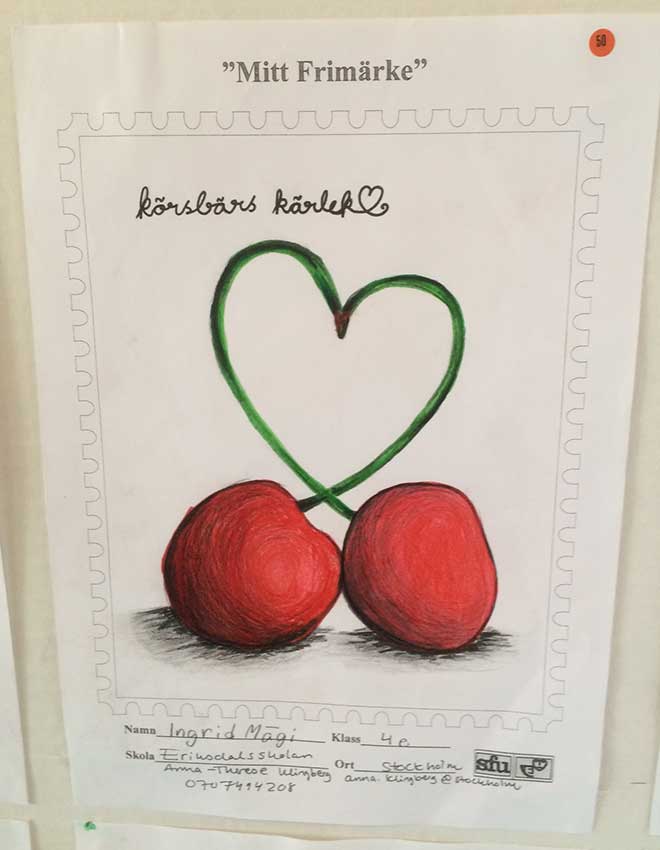 50
"Mitt Frimärke"
körsbärs kärlek
Namn Ingrid Mägi Klass 4e
Skola Eriksdalsskolan Ort Stockholm
Anna-Therese Klingberg anna.klingberg@stockholm
0707494208
sfu